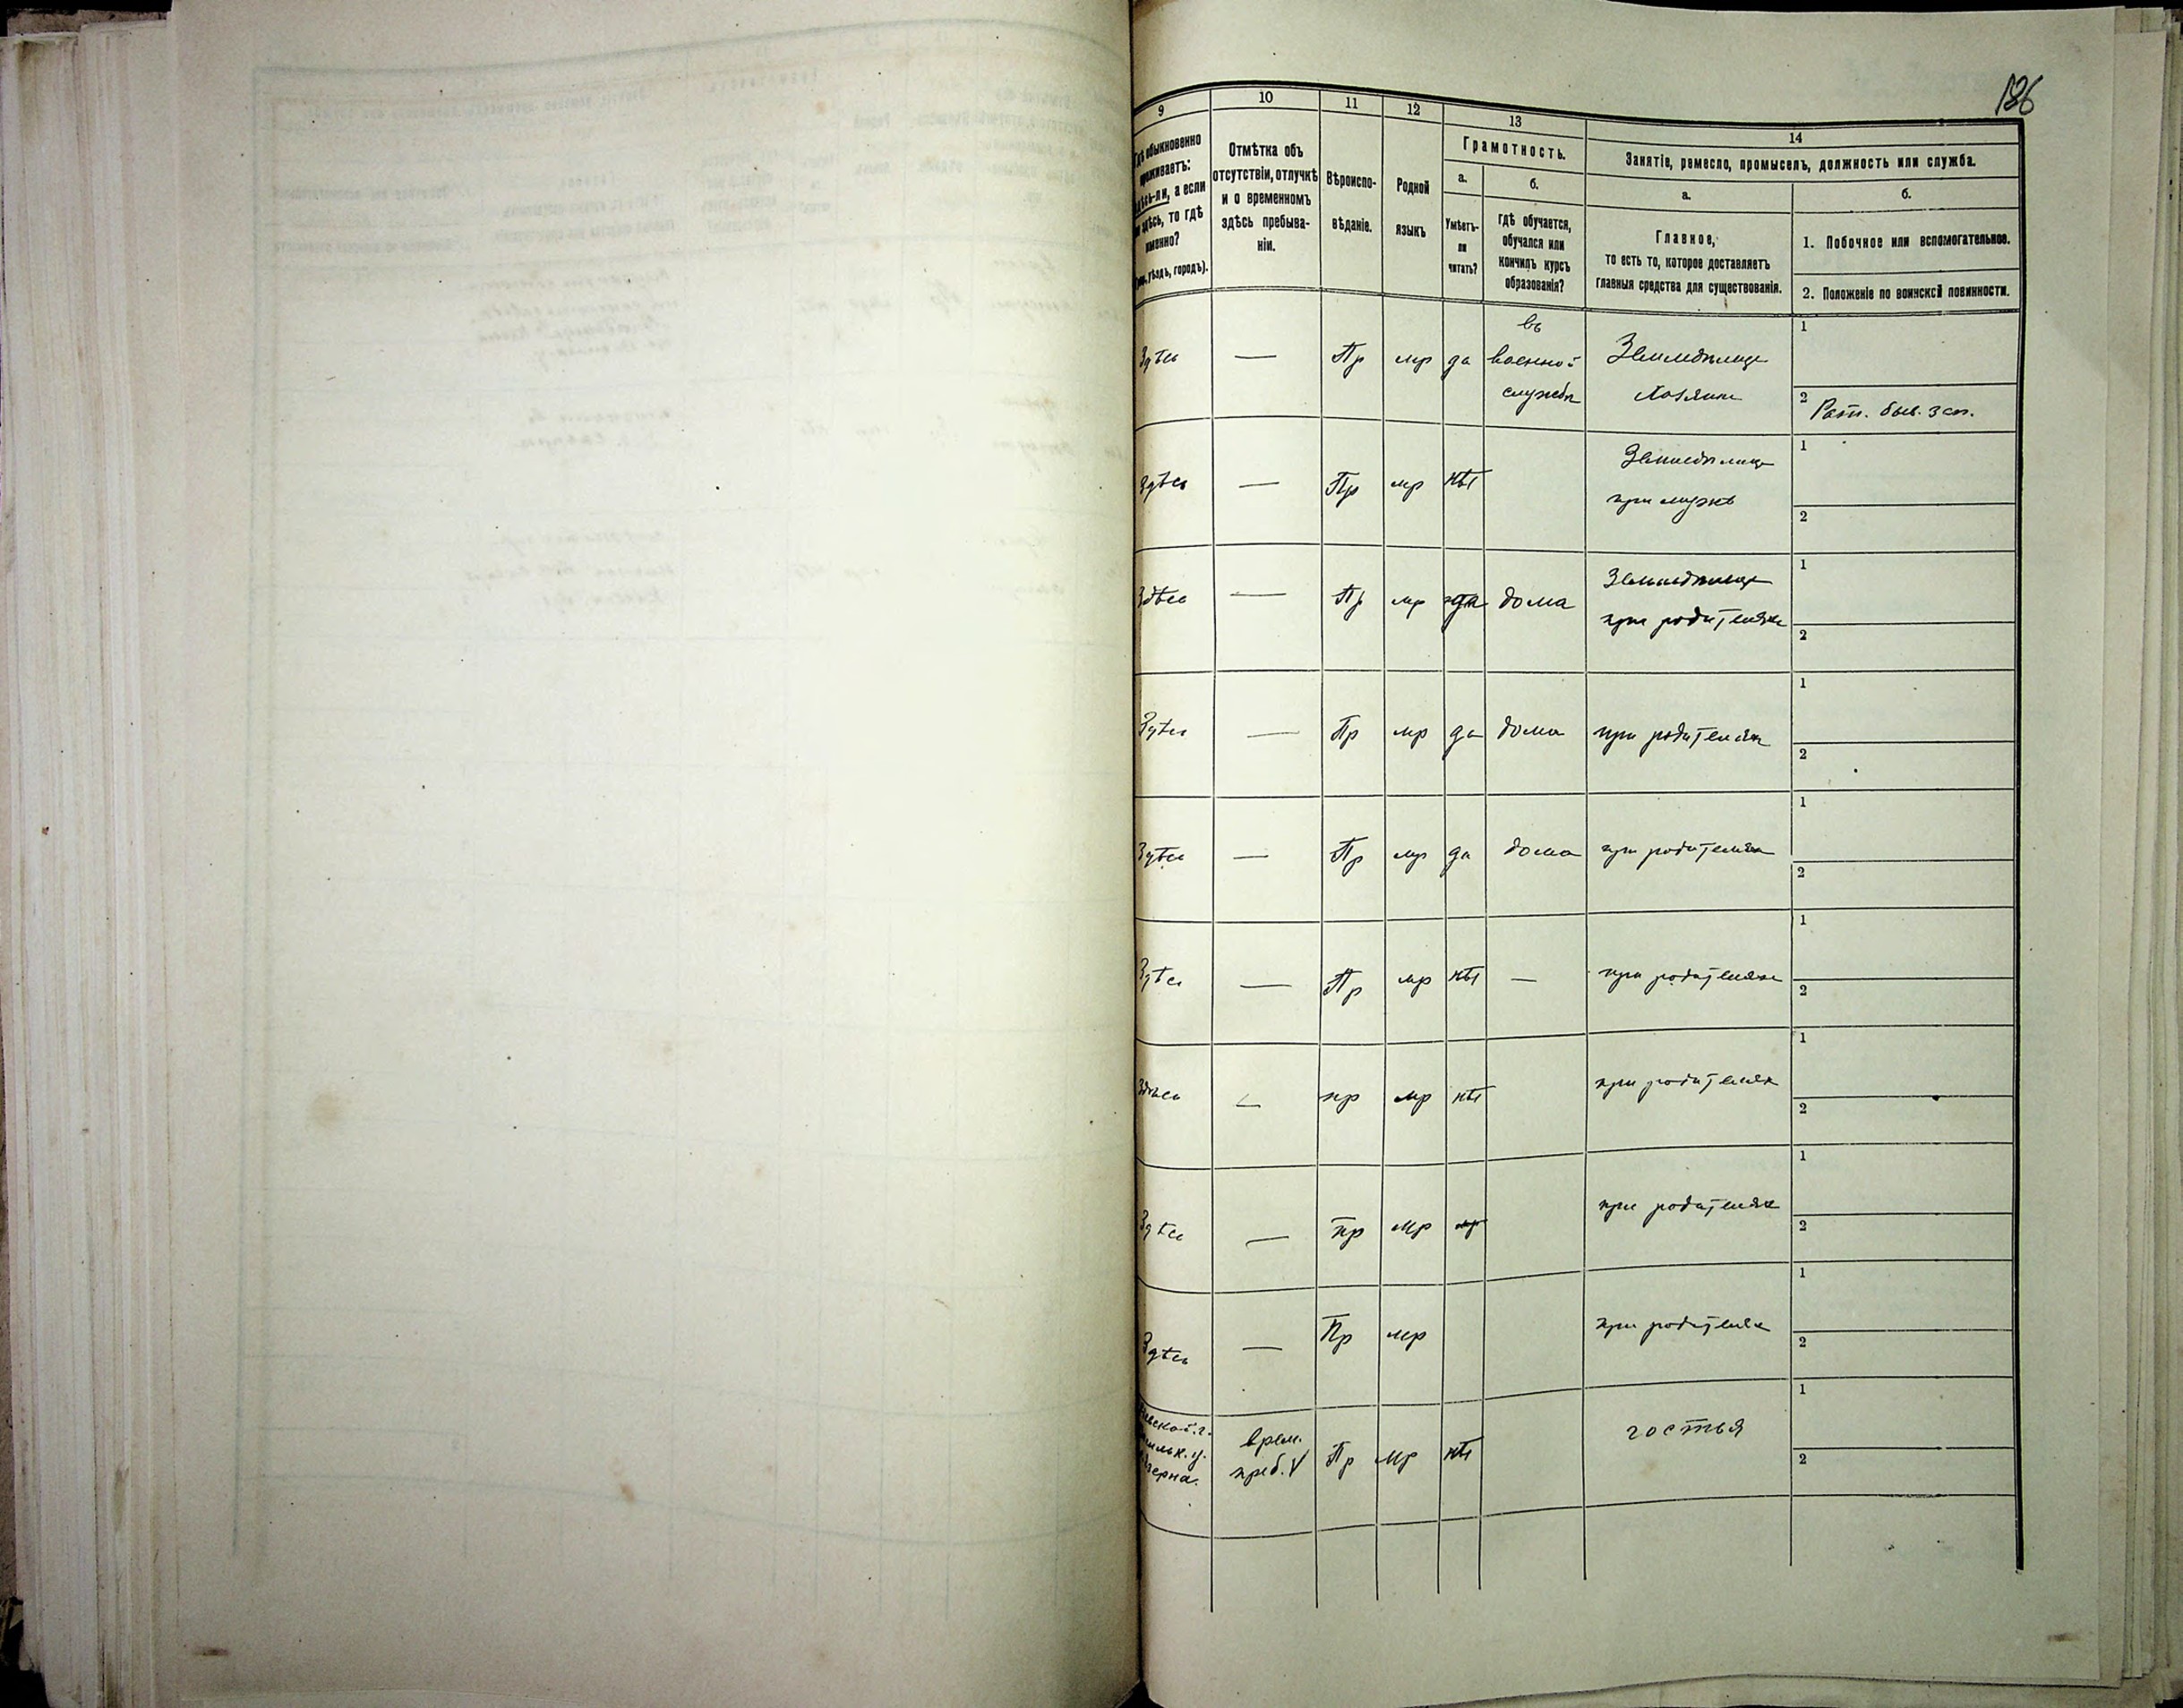 186
9
10
11
12
13
14
обыкновенно
проживаетъ:
здѣсь-ли, а если
здѣсь, то гдѣ
именно?
уѣздъ, городъ).
Отмѣтка объ
отсутствіи, отлучкѣ
и о временномъ
здѣсь пребыва-
ніи.
Вѣроиспо-
вѣданіе.
Родной
языкъ
Грамотность.
а.
Умѣетъ-
ли
читать?
б.
гдѣ обучается,
обучался или
кончилъ курсъ
образованія?
Занятіе, ремесло, промыселъ, должность или служба.
а.
Главное,
то есть то, которое доставляетъ
главныя средства для существованія.
б.
1. Побочное или вспомогательное.
2. Положеніе по воинской повинности.
Здѣсь — Пр мр да
въ
военной
службѣ
Земледѣлецъ
хозяинъ
1
2 Рат. быв. зап.
Здѣсь — Пр мр нѣт
Земледѣлец
при мужѣ
1
2
Здѣсь — Пр мр да дома
Земледѣлец
при родителях
1
2
Здѣсь — Пр мр да дома при родителях
1
2
Здѣсь — Пр мр да дома при родителях
1
2
Здѣсь — Пр мр нѣт — при родителях
1
2
Здѣсь — пр мр нѣт при родителях
1
2
Здѣсь — пр мр мр при родителях
1
2
Здѣсь — Пр мр при родителях
1
2
врем.
преб. V
Пр мр нѣт гостья
1
2